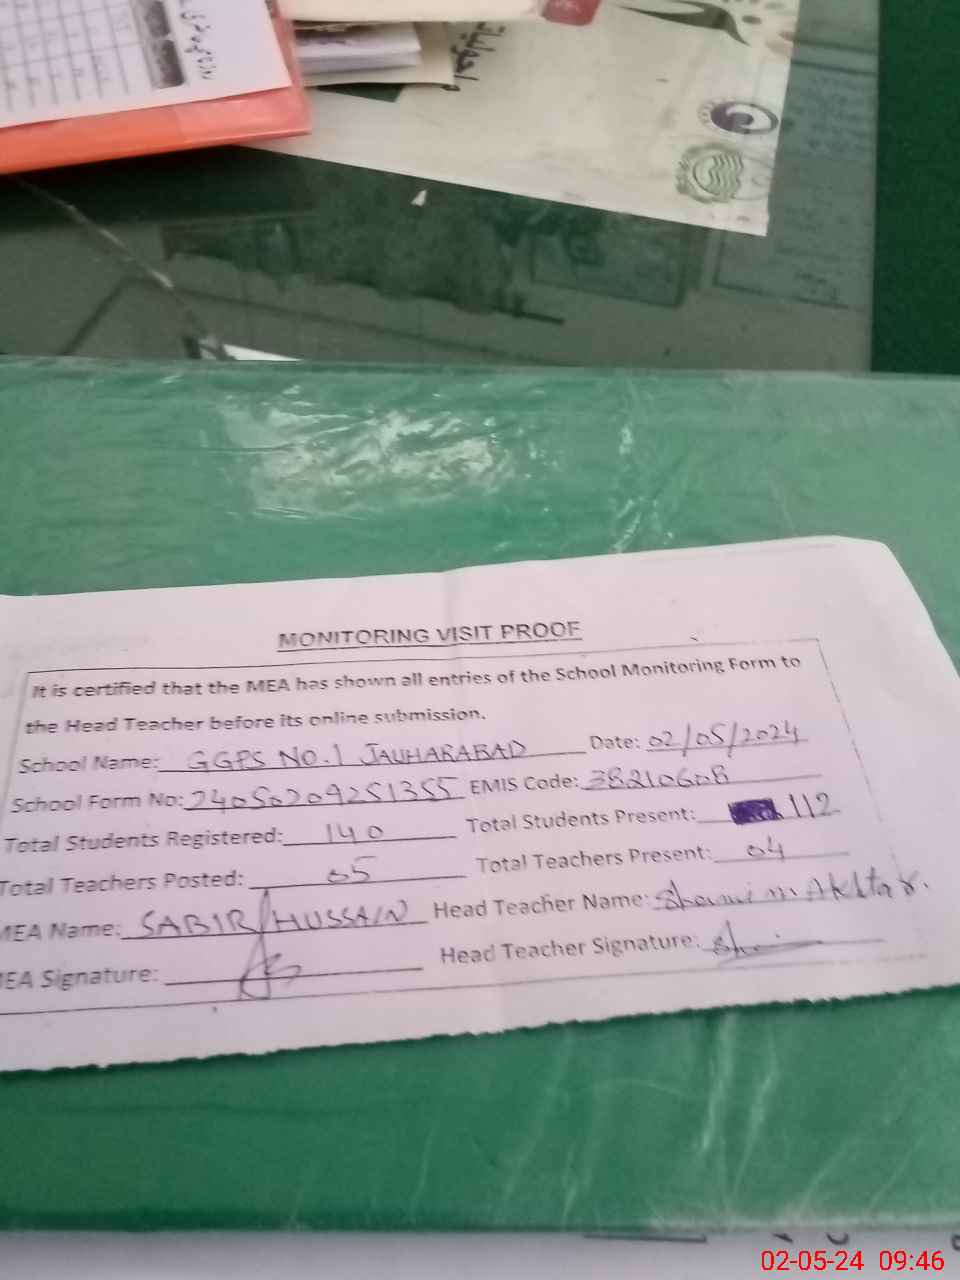 MONITORING VISIT PROOF
It is certified that the MEA has shown all entries of the School Monitoring Form to
the Head Teacher before its online submission.
School Name: GGPS NO.1 JAUHARABAD Date: 02/05/2024
School Form No: 240502092S1355 EMIS Code: 38210608
Total Students Registered: 140 Total Students Present: 112
Total Teachers Posted: 05 Total Teachers Present: 04
MEA Name: SABIR HUSSAIN Head Teacher Name: Shamim Akhtar.
MEA Signature: Head Teacher Signature:
02-05-24 09:46